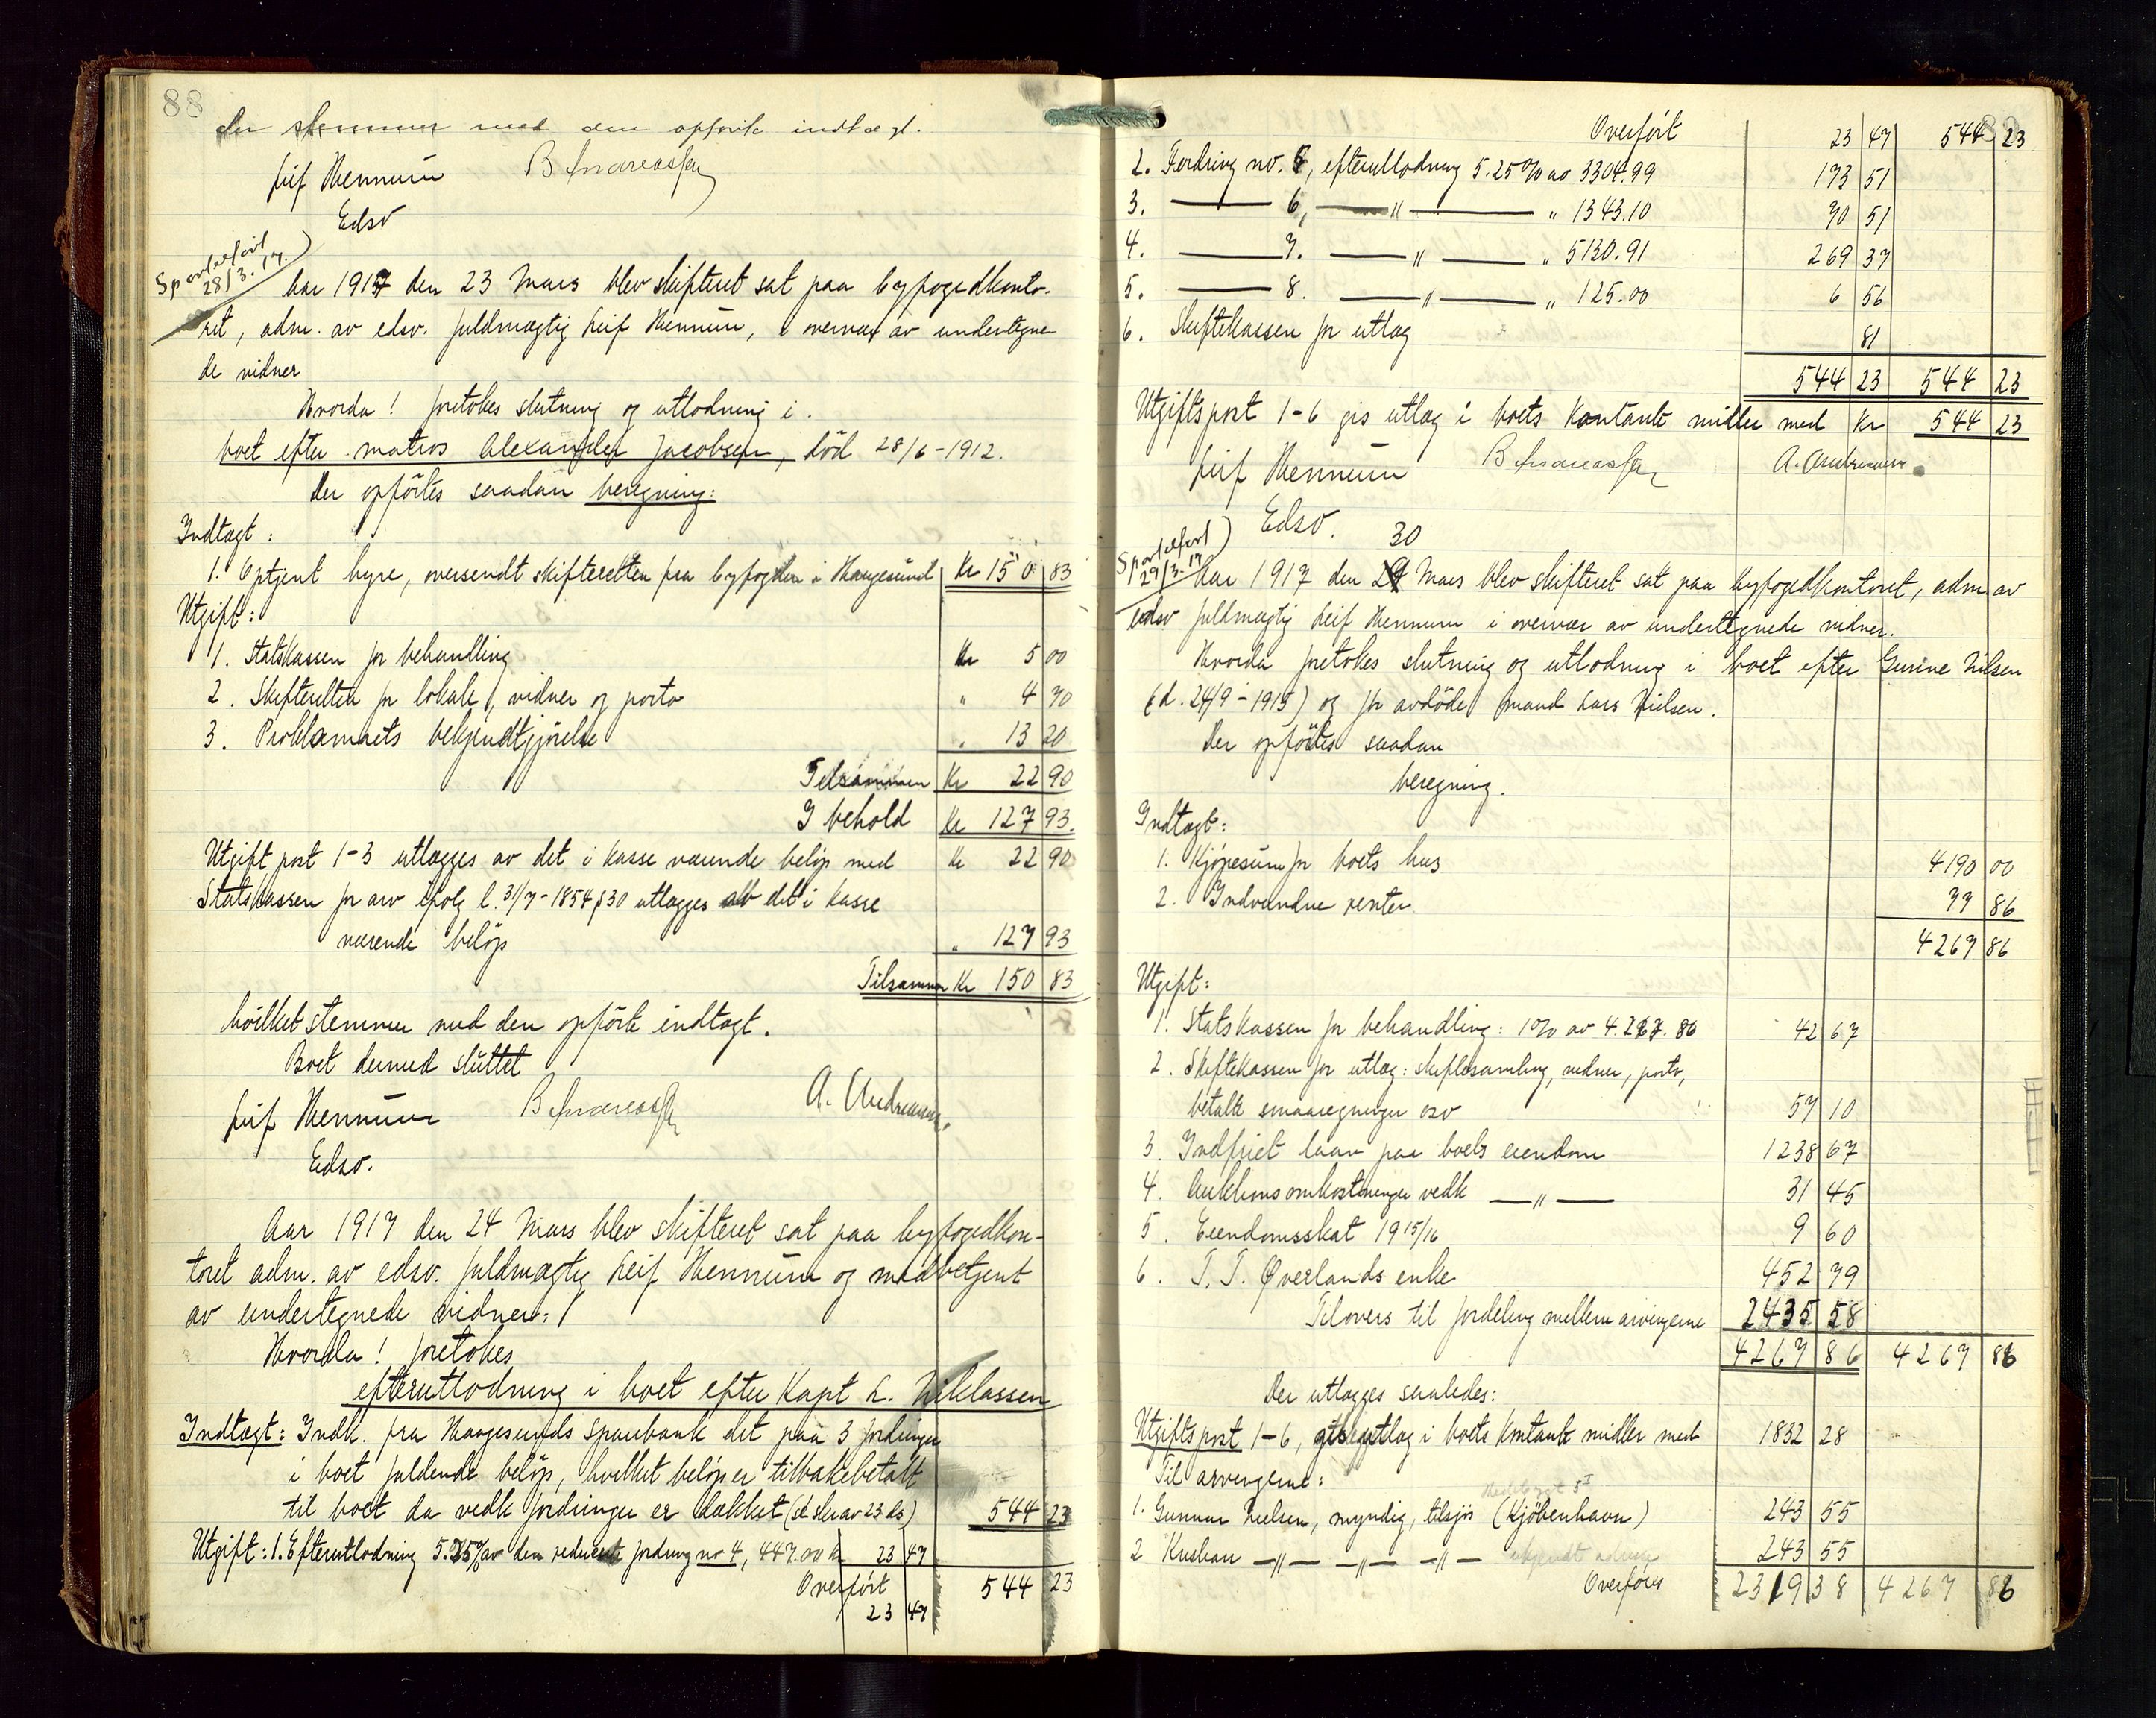 88
der stemmer med den opførte indtægt.
Leif Hennum B Andreassen
Edsv
Sportelført
28/3. 17.
Aar 1917 den 23 Mars blev skifteret sat paa byfogedkonto-
ret, adm. av edsv. fuldmægtig Leif Hennum, i overvær av undertegne
de vidner
Hvorda! foretokes slutning og utlodning i
boet efter matros Alexander Jacobsen, død 28/6-1912.
Der opførtes saadan beregning:
Indtægt:
1. Optjent hyre, oversendt skifteretten fra byfogden i Haugesund Kr 150 83
Utgift:
1. Statskassen for behandling Kr 5 00
2. Skifteretten for lokale, vidner og porto " 4 70
3. Proklamaets bekjendtgjørelse " 13 20
Tilsammen Kr 22 90
I behold Kr 127 93.
Utgift post 1-3 utlægges av det i kasse værende beløp med Kr 22 90
Statskassen for arv ifølg l. 31/7-1854 § 30 utlægges av det i kasse
værende beløp " 127 93
Tilsammen Kr 150 83
hvilket stemmer med den opførte indtægt.
Boet dermed sluttet
Leif Hennum B Andreassen A. Andreassen.
Edsv.
Aar 1917 den 24 Mars blev skifteret sat paa byfogedkon-
toret adm. av edsv. fuldmægtig Leif Hennum og medbetjent
av undertegnede vidner:
Hvorda! foretokes
efterutlodning i boet efter Kapt L. Niklassen
Indtægt: Indk. fra Haugesunds Sparebank det paa 3 fordringer
i boet faldende beløp, hvilket beløp er tilbakebetalt
til boet da vedk fordringer er dækket (se skr av 23 ds) 544 23
Utgift: 1. Efterutlodning 5.25% av den reducerte fordring no 4, 447.00 kr 23 47
Overført 544 23
23 47
89
Overført 23 47 544 23
2. Fordring no. 5, efterutlodning 5.25% av 3304.99 173 51
3. — 6, — " — " 1343.10 70 51
4. — 7. — " — " 5130.91 269 37
5. — 8. — " — " 125.00 6 56
6. Skiftekassen for utlæg 81
544 23 544 23
Utgiftspost 1-6 gis utlæg i boets kontante midler med Kr 544 23
Leif Hennum B Andreassen A. Andreassen.
Edsv.
Sportelført
29/3-17
30
Aar 1917 den 29 Mars blev skifteret sat paa byfogedkontoret, adm av
edsv fuldmægtig Leif Hennum i overvær av undertegnede vidner.
Hvorda foretokes slutning og utlodning i boet efter Gurine Nilsen
(d. 24/9-1915) og før avdøde mand Lars Nielsen.
Der opførtes saadan
beregning.
Indtægt:
1. Kjøpesum for boets hus 4190 00
2. Indvundne renter 77 86
4267 86
Utgift:
1. Statskassen for behandling: 1% av 4.267.86 42 67
2. Skiftekassen for utlæg: skiftesamling, vidner, porto,
betalte smaaregninger osv 57 10
3. Indfriet laan paa boets eiendom 1238 67
4. Auktionsomkostninger vedk — " — 31 45
5. Eiendomsskat 1915/16 9 60
6. T. T. Øverlands enke 452 79
Tilovers til fordeling mellem arvingerne 2435 58
4267 86 4267 86
Der utlægges saaledes:
Utgiftspost 1-6, utlæg i boets kontante midler med 1832 28
Til arvingerne:
1. Gunnar Nielsen, myndig, tilsjøs (Kjøbenhavn) 243 55
2 Kristian — " — — " — — " — 243 55
Overføres 2319 38 4267 86